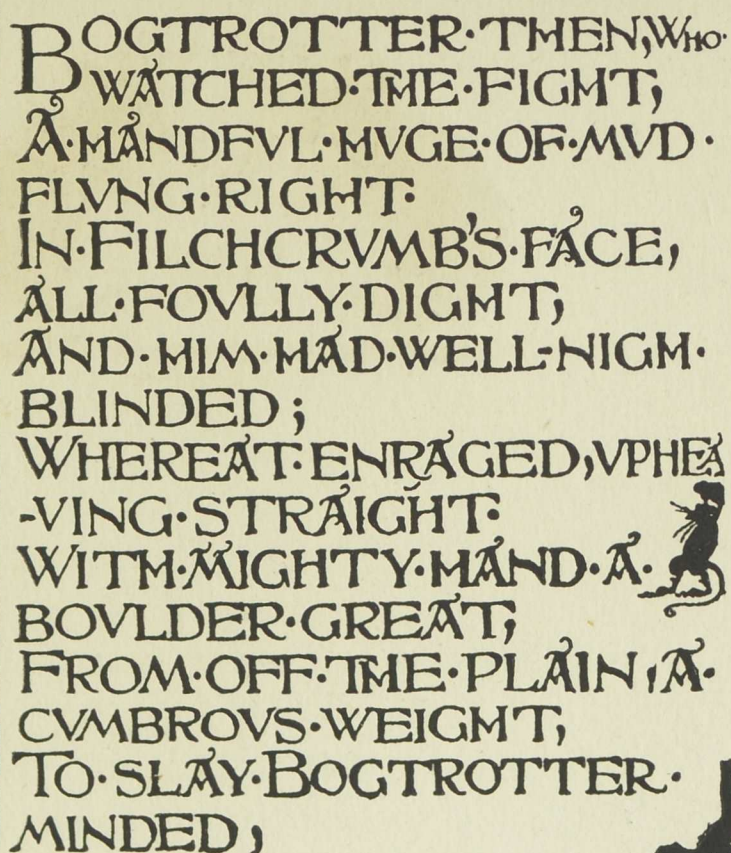 BOGTROTTER·THEN, WHO·
WATCHED·THE·FIGHT,
A·HANDFVL·HVGE·OF·MVD·
FLVNG·RIGHT·
IN·FILCHCRVMB'S·FACE,
ALL·FOVLLY·DIGHT,
AND·HIM·HAD·WELL-NIGH·
BLINDED;
WHEREAT·ENRAGED, VPHEA
-VING·STRAIGHT·
WITH·MIGHTY·HAND·A·
BOVLDER·GREAT,
FROM·OFF·THE·PLAIN, A·
CVMBROVS·WEIGHT,
TO·SLAY·BOGTROTTER·
MINDED;